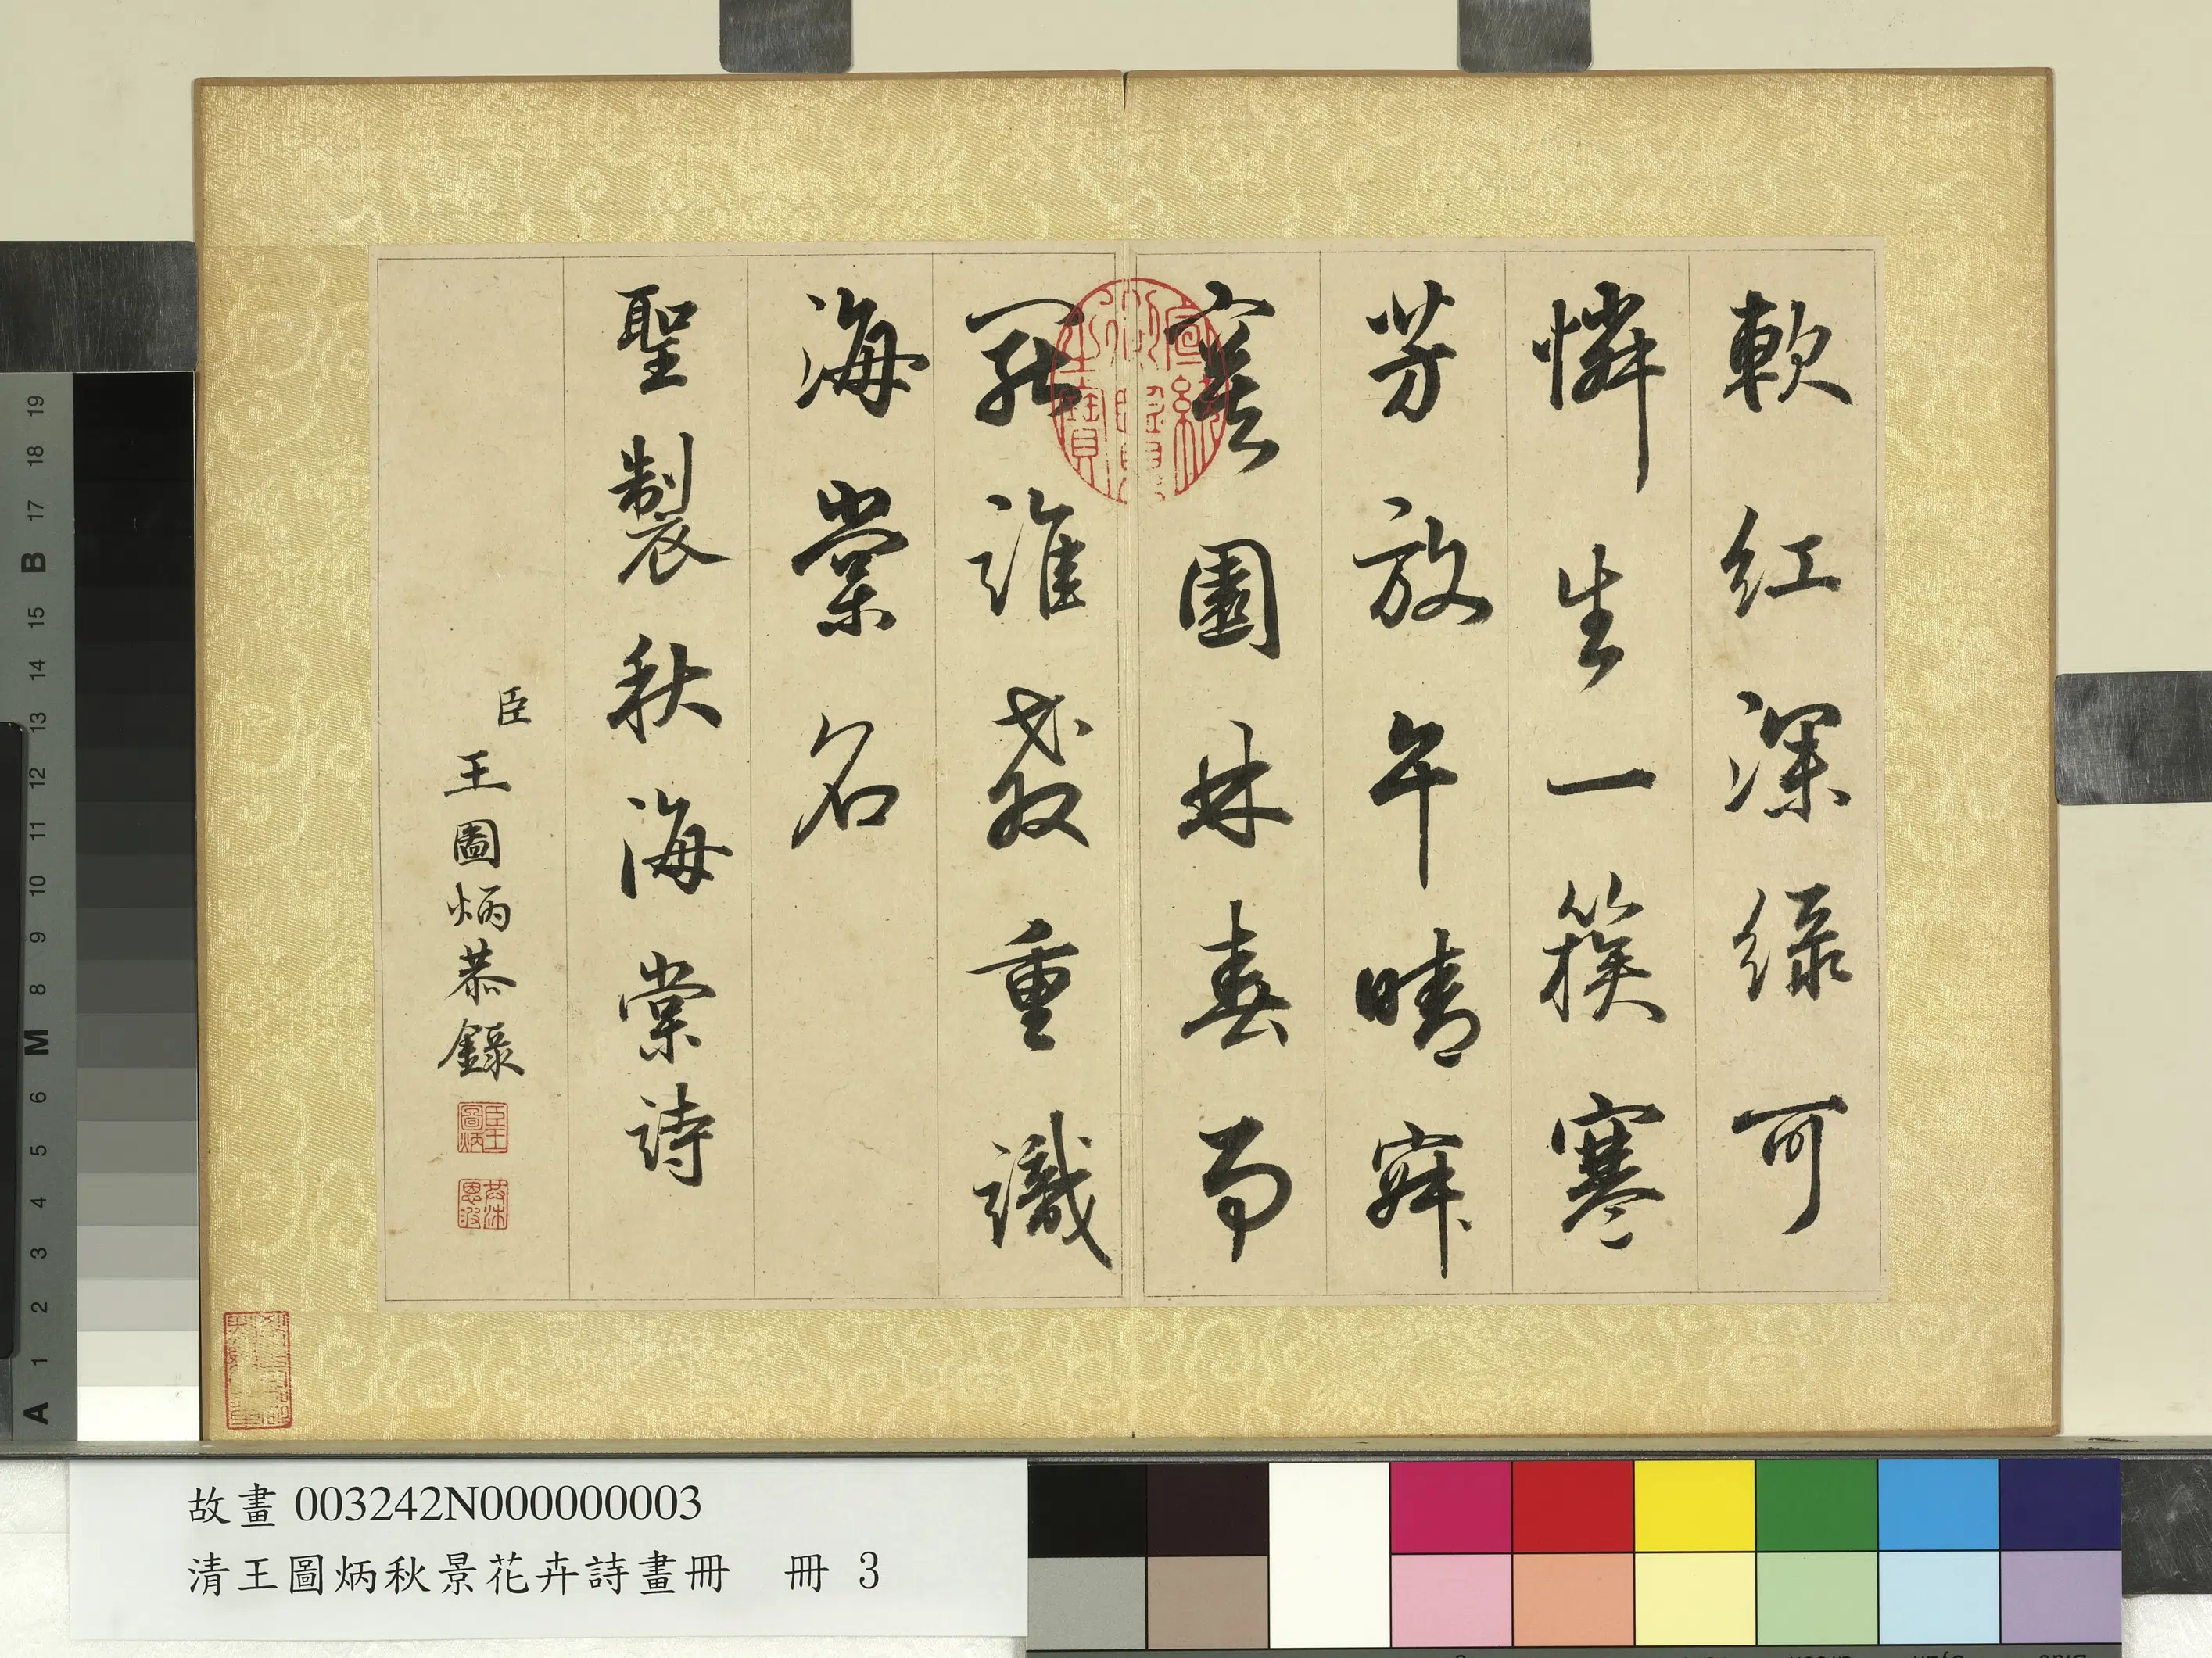 軟紅深綠可
憐生一簇寒
芳放午晴寂
寞園林春局
罷誰教重識
海棠名
聖製秋海棠詩
臣
王圖炳恭錄
臣王圖炳
宣統御覽之寶
故畫 003242N000000003
清王圖炳秋景花卉詩畫冊 冊 3
A 1 2 3 4 5 6 M 8 9 10 11 12 13 14 15 B 17 18 19